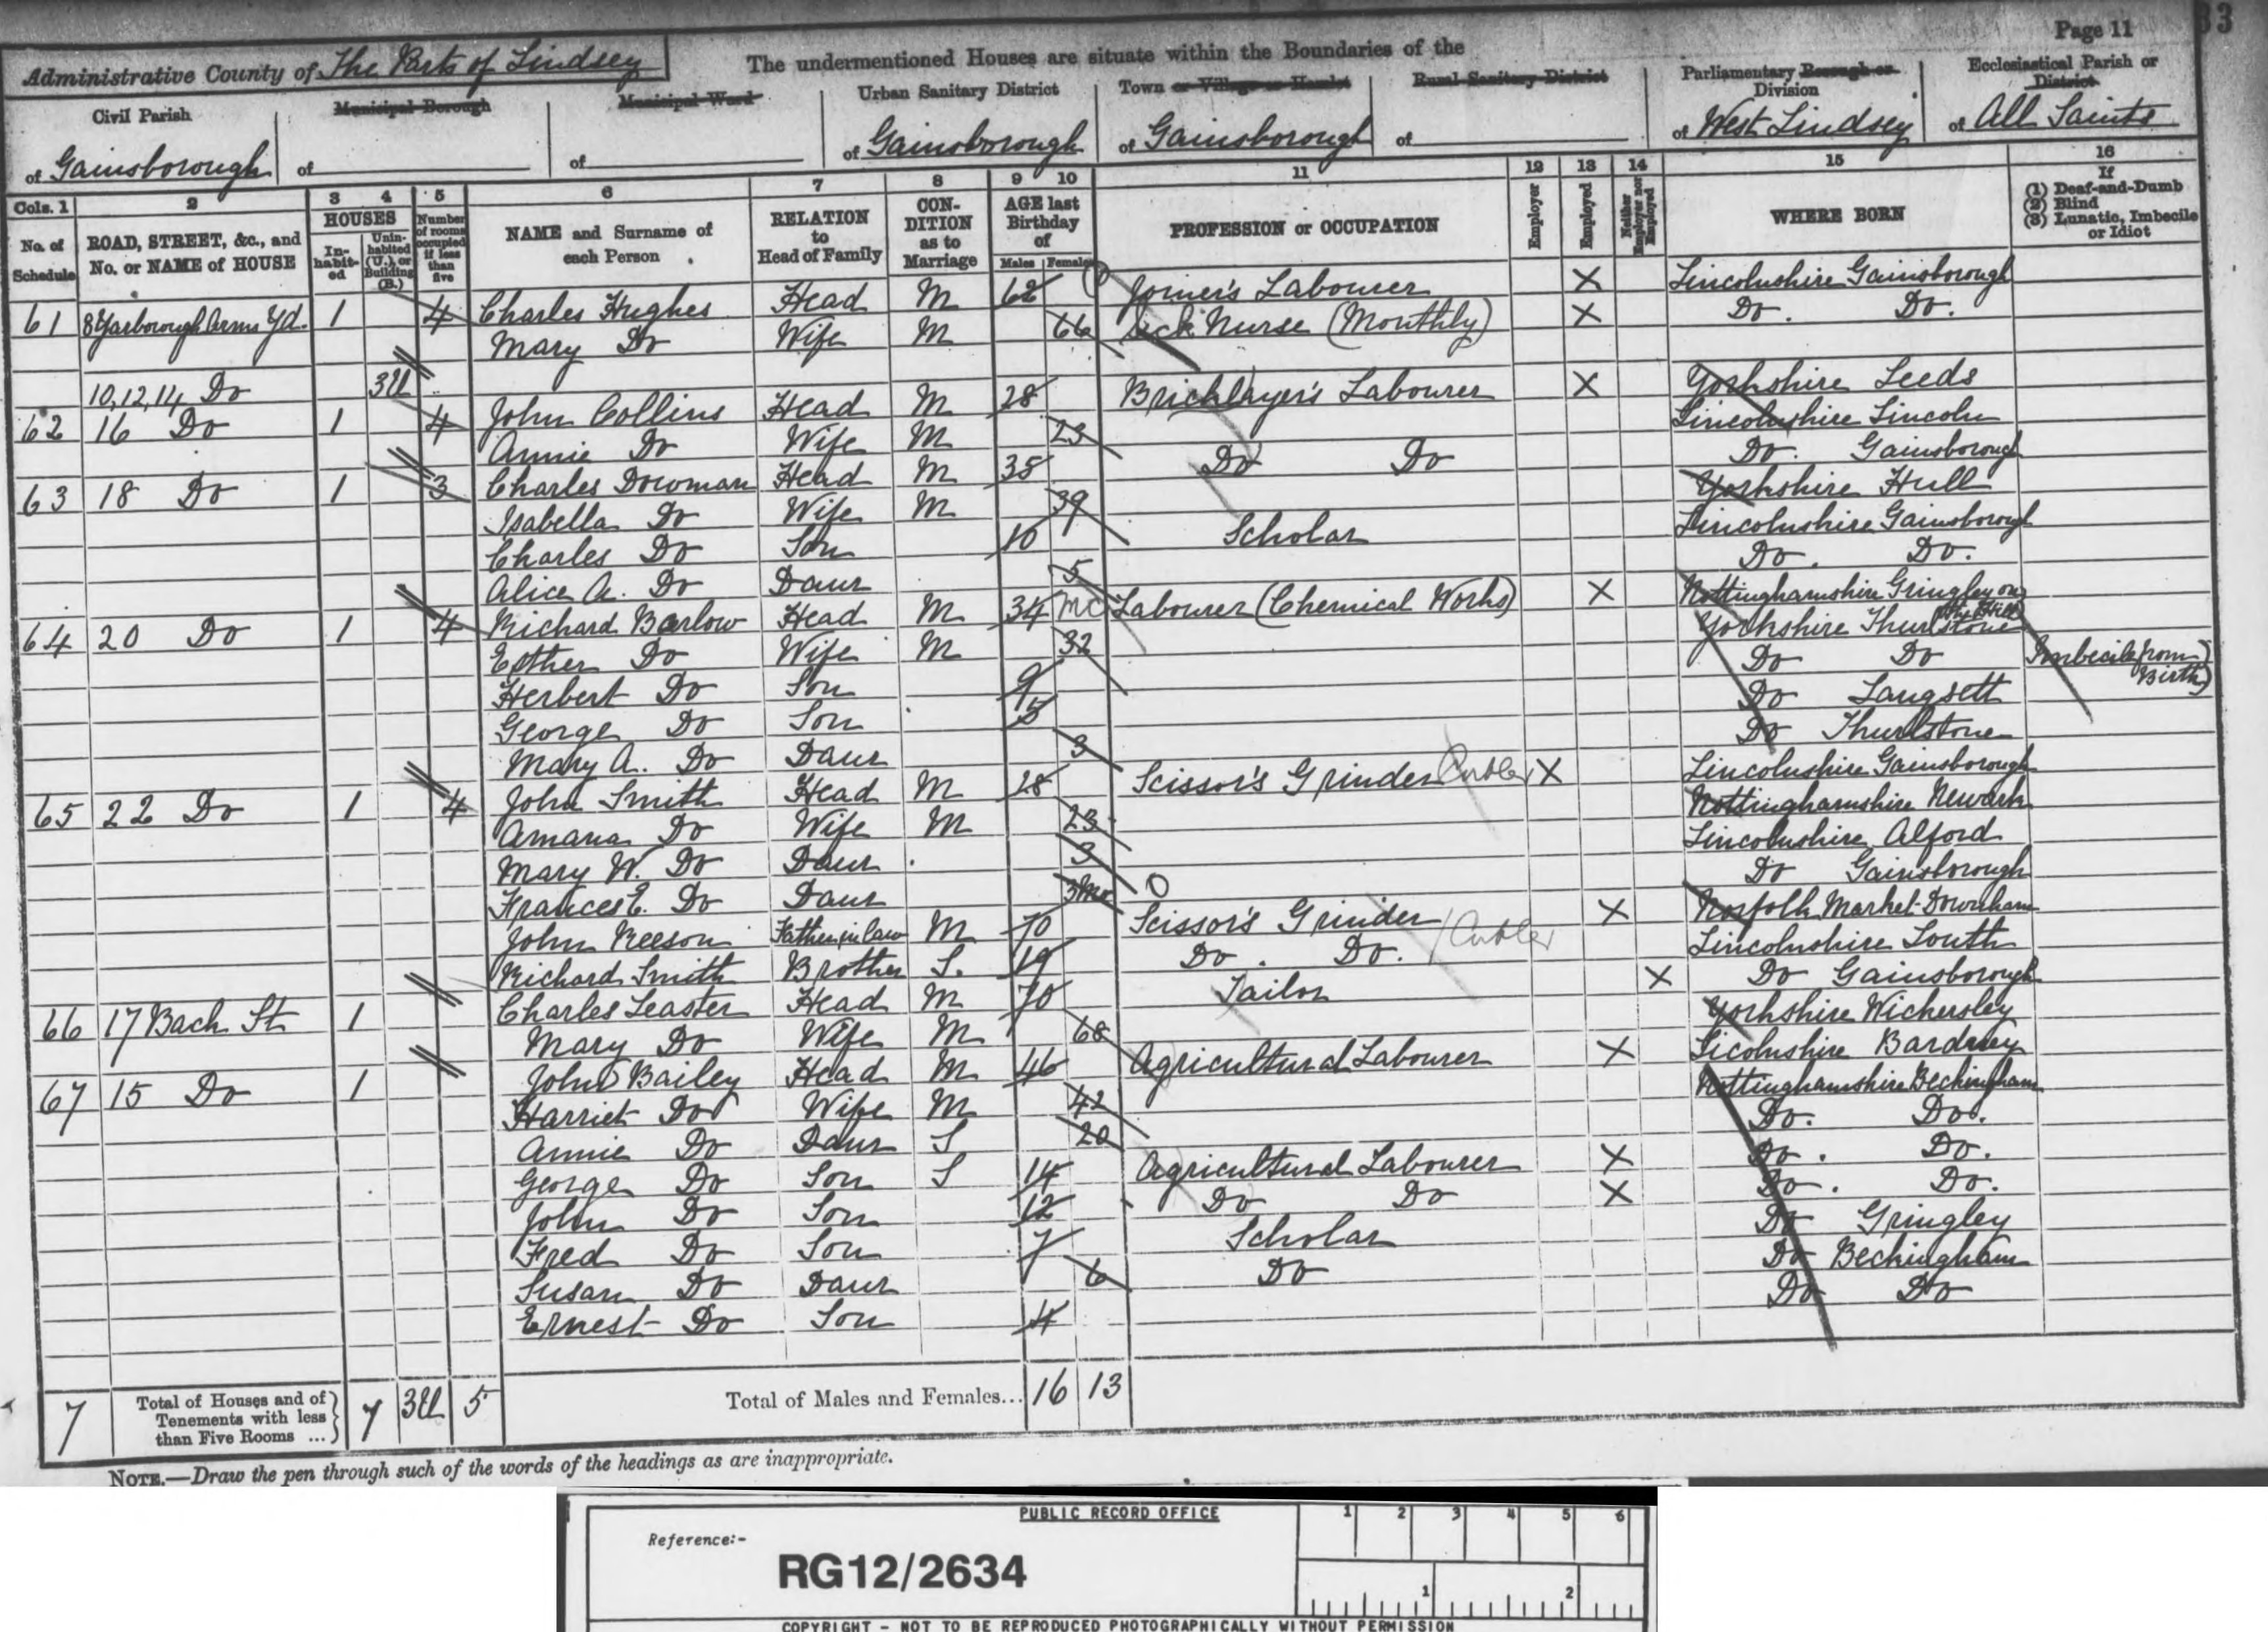 Page 11
33
Administrative County of The Parts of Lindsey
The undermentioned Houses are situate within the Boundaries of the
Civil Parish Municipal Borough Municipal Ward Urban Sanitary District Town or Village or Hamlet Rural Sanitary District Parliamentary Borough or Division Ecclesiastical Parish or District
of Gainsborough of of of Gainsborough of Gainsborough of of West Lindsey of All Saints
Cols. 1 2 3 4 5 6 7 8 9 10 11 12 13 14 15 16
No. of Schedule ROAD, STREET, &c., and No. or NAME of HOUSE HOUSES In-habit-ed Unin-habited (U.), or Building (B.) Number of rooms occupied if less than five NAME and Surname of each Person RELATION to Head of Family CON-DITION as to Marriage AGE last Birthday of Males Females PROFESSION or OCCUPATION Employer Employed Neither Employer nor Employed WHERE BORN If (1) Deaf-and-Dumb (2) Blind (3) Lunatic, Imbecile or Idiot
61 8 Yarborough Arms Yd. 1 4 Charles Hughes Head M 62 Joiner's Labourer X Lincolnshire Gainsborough
Mary Do Wife M 66 Sick Nurse (Monthly) X Do. Do.
10, 12, 14 Do 3U
62 16 Do 1 4 John Collins Head M 28 Bricklayer's Labourer X Yorkshire Leeds
Annie Do Wife M 23 Lincolnshire Lincoln
63 18 Do 1 3 Charles Dowman Head M 35 Do Do Do. Gainsborough
Isabella Do Wife M 39 Yorkshire Hull
Charles Do Son 10 Scholar Lincolnshire Gainsborough
Alice A. Do Daur 5 Do. Do.
64 20 Do 1 4 Richard Barlow Head M 34 Labourer (Chemical Works) X Nottinghamshire Gringley on the Hill
Esther Do Wife M 32 Yorkshire Thurlstone
Herbert Do Son 9 Do Do Imbecile from Birth)
George Do Son 5 Do Langsett
Mary A. Do Daur 3 Do Thurlstone
65 22 Do 1 4 John Smith Head M 28 Scissor's Grinder Cutler X Lincolnshire Gainsborough
Amana Do Wife M 23 Nottinghamshire Newark
Mary W. Do Daur 3 Lincolnshire Alford
Frances E. Do Daur 3mo Do Gainsborough
John Reeson Father in law M 70 Scissor's Grinder X Norfolk Market Downham
Richard Smith Brother S. 19 Do. Do. / Cutler Lincolnshire Louth
66 17 Back St 1 Charles Leaster Head M 70 Tailor X Do Gainsborough
Mary Do Wife M 68 Yorkshire Wickersley
67 15 Do 1 John Bailey Head M 46 Agricultural Labourer X Licolnshire Bardney
Harriet Do Wife M 42 Nottinghamshire Beckingham
Annie Do Daur S 20 Do. Do.
George Do Son S 14 Agricultural Labourer X Do. Do.
John Do Son 12 Do Do X Do. Do.
Fred Do Son 7 Scholar Do Gringley
Susan Do Daur 6 Do Do Beckingham
Ernest Do Son 4 Do Do
7 Total of Houses and of Tenements with less than Five Rooms ... 7 3U 5 Total of Males and Females... 16 13
NOTE.—Draw the pen through such of the words of the headings as are inappropriate.
PUBLIC RECORD OFFICE
1 2 3 4 5 6
Reference:-
RG12/2634
1 2
COPYRIGHT - NOT TO BE REPRODUCED PHOTOGRAPHICALLY WITHOUT PERMISSION